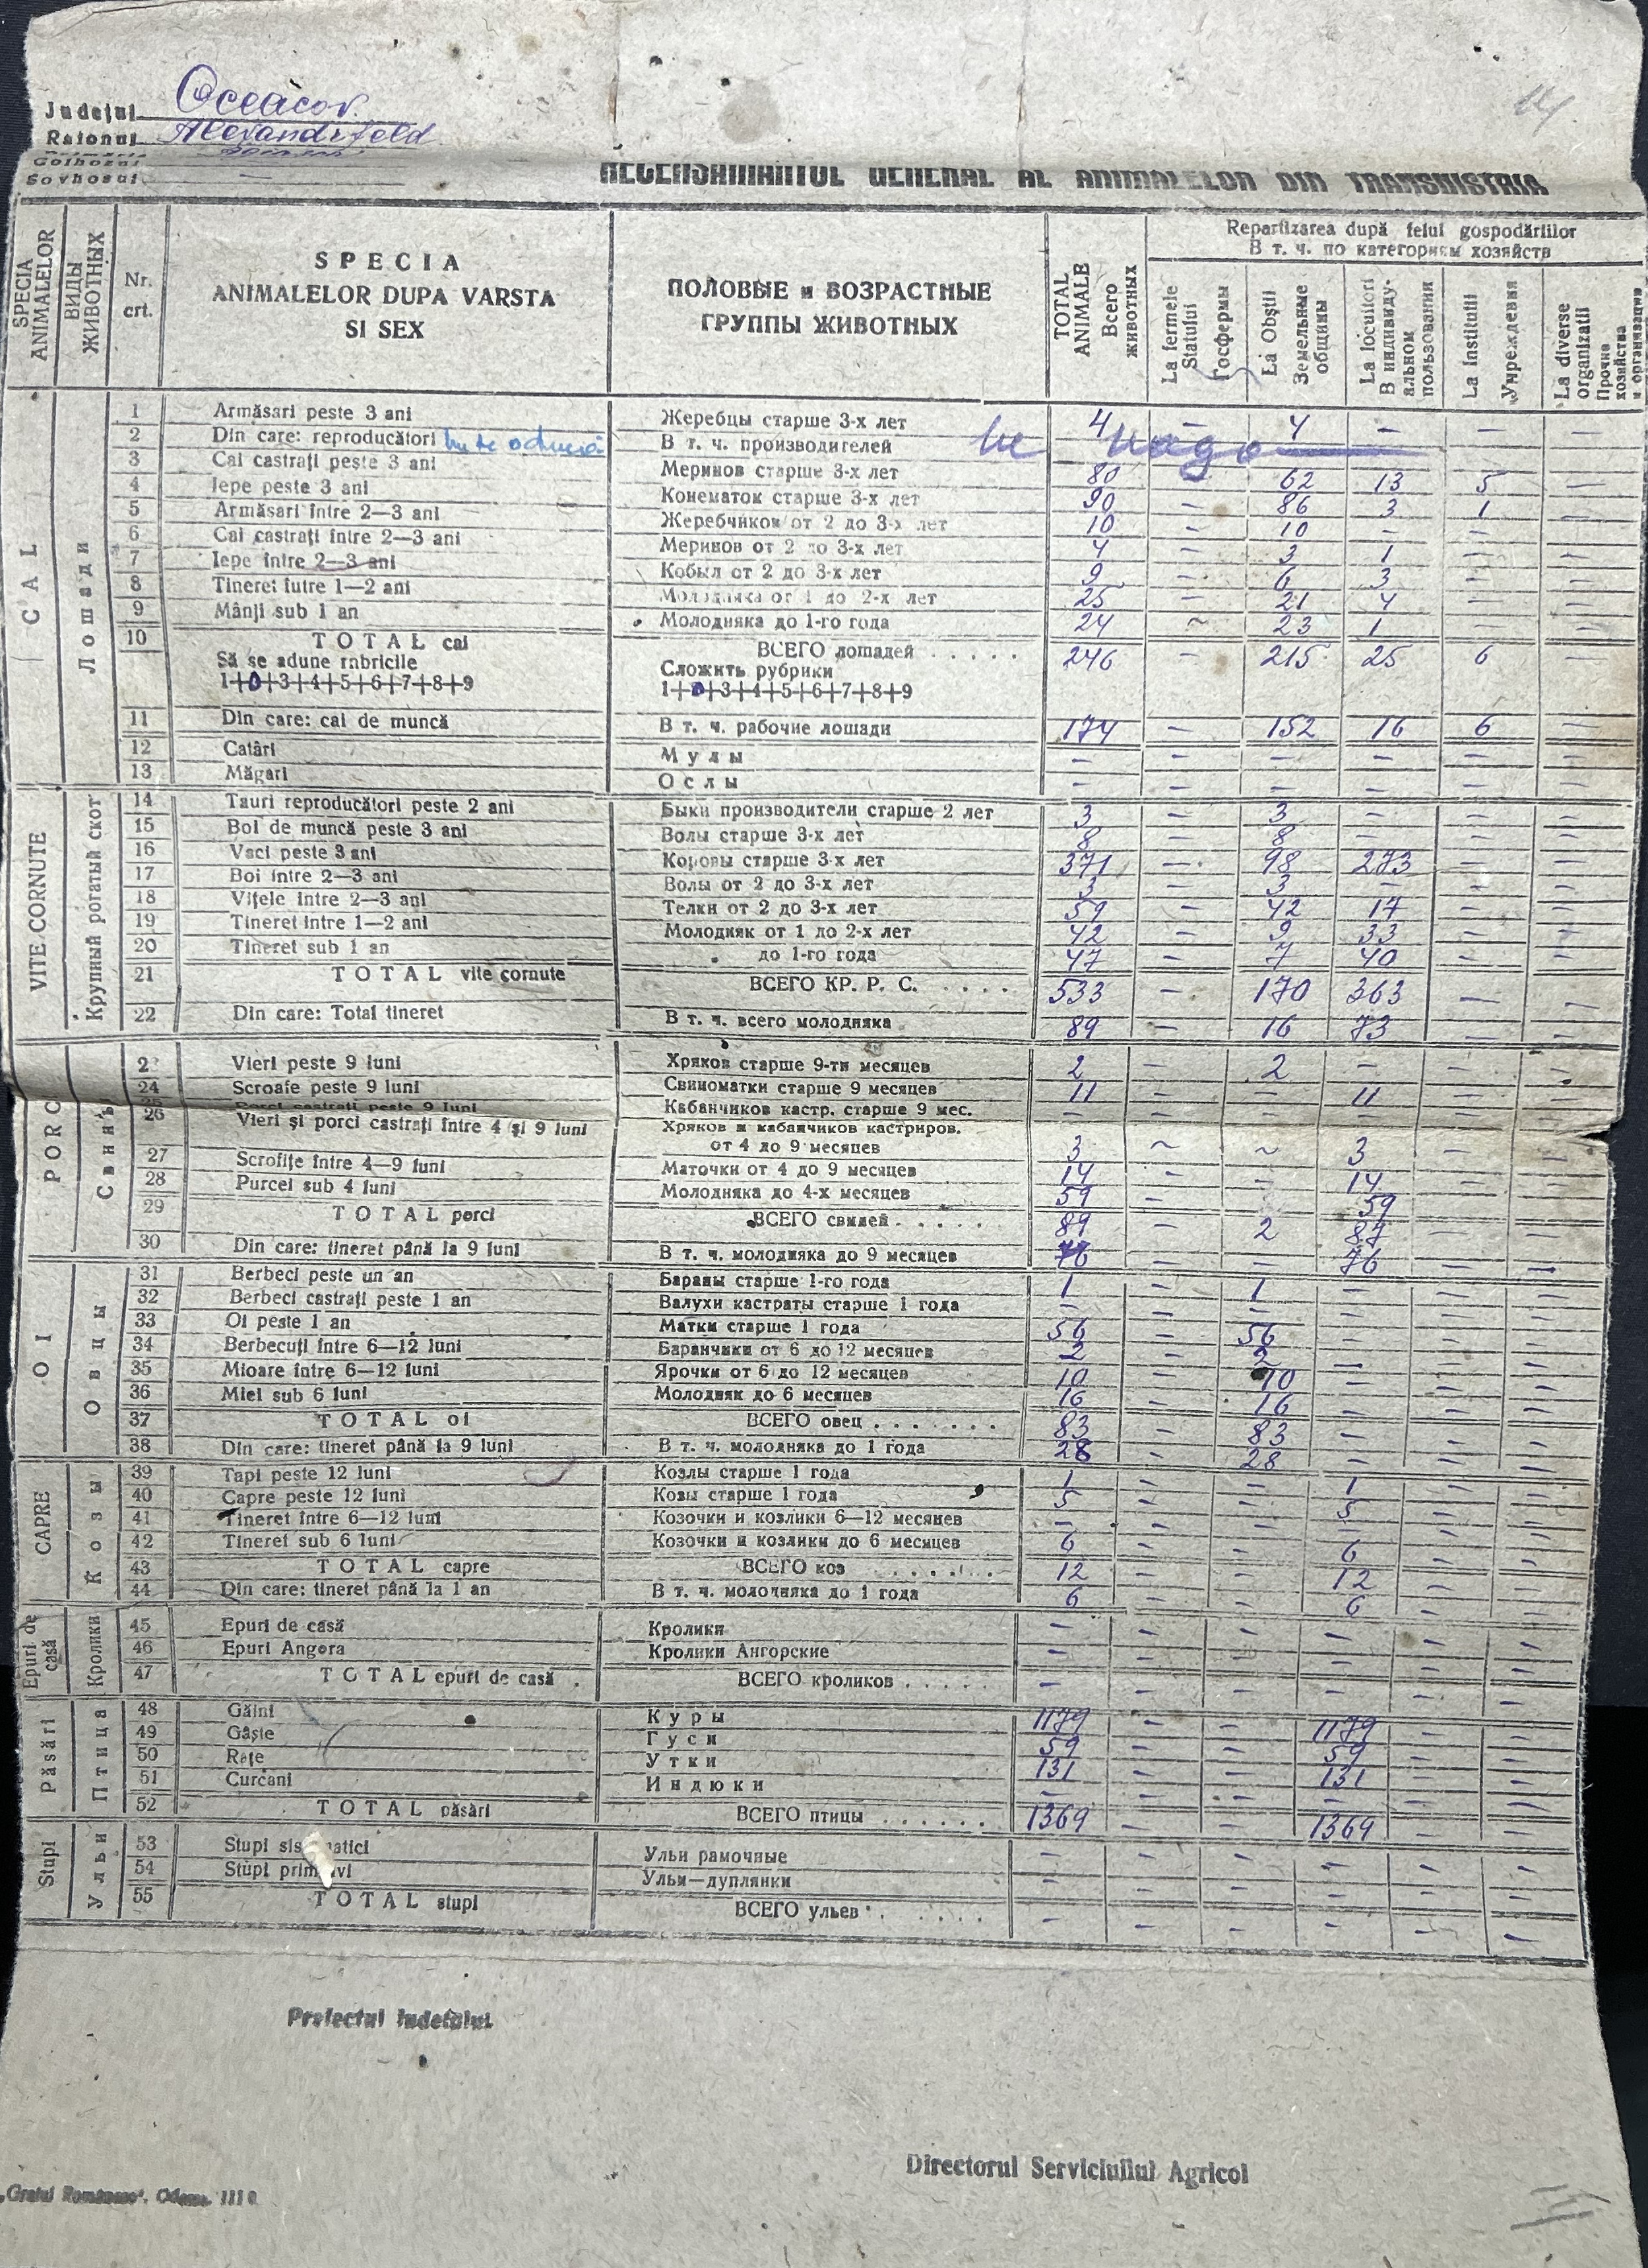 Județul Oceacov.
Raionul Alexandrfeld
Colhozul
Sovhosul —
RECENSAMANTUL GENERAL AL ANIMALELOR DIN TRANSNISTRIA
SPECIA ANIMALELOR
ВИДЫ ЖИВОТНЫХ
Nr. crt.
SPECIA ANIMALELOR DUPA VARSTA SI SEX
ПОЛОВЫЕ и ВОЗРАСТНЫЕ ГРУППЫ ЖИВОТНЫХ
TOTAL ANIMALE Всего животных
Repartizarea după felul gospodăriilor
В т. ч. по категориям хозяйств
La fermele Statului Госфермы
La Obștii Земельные общины
La locuitori В индивидуальном пользовании
La Institutii Учреждения
La diverse organizatii Прочие хозяйства и организации
CAL Лошади
1 Armăsari peste 3 ani Жеребцы старше 3-х лет 4 — 4 — — —
2 Din care: reproducători В т. ч. производителей не надо
3 Cai castrați peste 3 ani Меринов старше 3-х лет 80 — 62 13 5 —
4 Iepe peste 3 ani Конематок старше 3-х лет 90 — 86 3 1 —
5 Armăsari între 2—3 ani Жеребчиков от 2 до 3-х лет 10 — 10 — — —
6 Cai castrați între 2—3 ani Меринов от 2 до 3-х лет 4 — 3 1 — —
7 Iepe între 2—3 ani Кобыл от 2 до 3-х лет 9 — 6 3 — —
8 Tineret între 1—2 ani Молодняка от 1 до 2-х лет 25 — 21 4 — —
9 Mânji sub 1 an Молодняка до 1-го года 24 ~ 23 1 — —
10 TOTAL cai ВСЕГО лошадей . . . . . 246 — 215 25 6 —
Să se adune rubricile Сложить рубрики
1+0+3+4+5+6+7+8+9 1+0+3+4+5+6+7+8+9
11 Din care: cai de muncă В т. ч. рабочие лошади 174 — 152 16 6 —
12 Catâri Мулы — — — — — —
13 Măgari Ослы — — — — — —
VITE CORNUTE Крупный рогатый скот
14 Tauri reproducători peste 2 ani Быки производители старше 2 лет 3 — 3 — — —
15 Boi de muncă peste 3 ani Волы старше 3-х лет 8 — 8 — — —
16 Vaci peste 3 ani Коровы старше 3-х лет 371 — 98 273 — —
17 Boi între 2—3 ani Волы от 2 до 3-х лет 3 — 3 — — —
18 Vițele între 2—3 ani Телки от 2 до 3-х лет 59 — 42 17 — —
19 Tineret între 1—2 ani Молодняк от 1 до 2-х лет 42 — 9 33 — —
20 Tineret sub 1 an до 1-го года 47 — 7 40 — —
21 TOTAL vite cornute ВСЕГО КР. Р. С. . . . . 533 — 170 363 — —
22 Din care: Total tineret В т. ч. всего молодняка 89 — 16 73 — —
PORC Свиньи
2 Vieri peste 9 luni Хряков старше 9-ти месяцев 2 — 2 — — —
24 Scroafe peste 9 luni Свиноматки старше 9 месяцев 11 — — 11 — —
25 Porci castrați peste 9 luni Кабанчиков кастр. старше 9 мес. — — — — — —
26 Vieri și porci castrați între 4 și 9 luni Хряков и кабанчиков кастриров. от 4 до 9 месяцев 3 ~ ~ 3 — —
27 Scrofițe între 4—9 luni Маточки от 4 до 9 месяцев 14 — — 14 — —
28 Purcei sub 4 luni Молодняка до 4-х месяцев 59 — — 59 — —
29 TOTAL porci ВСЕГО свиней . . . . . 89 — 2 87 — —
30 Din care: tineret până la 9 luni В т. ч. молодняка до 9 месяцев 76 — — 76 — —
OI Овцы
31 Berbeci peste un an Бараны старше 1-го года 1 — 1 — — —
32 Berbeci castrați peste 1 an Валухи кастраты старше 1 года — — — — — —
33 Oi peste 1 an Матки старше 1 года 56 — 56 — — —
34 Berbecuți între 6—12 luni Баранчики от 6 до 12 месяцев 2 — 2 — — —
35 Mioare între 6—12 luni Ярочки от 6 до 12 месяцев 10 — 10 — — —
36 Miei sub 6 luni Молодняк до 6 месяцев 16 — 16 — — —
37 TOTAL oi ВСЕГО овец . . . . . . . 83 — 83 — — —
38 Din care: tineret până la 9 luni В т. ч. молодняка до 1 года 28 — 28 — — —
CAPRE Козы
39 Tapi peste 12 luni Козлы старше 1 года 1 — — 1 — —
40 Capre peste 12 luni Козы старше 1 года 5 — — 5 — —
41 Tineret între 6—12 luni Козочки и козлики 6—12 месяцев — — — — — —
42 Tineret sub 6 luni Козочки и козлики до 6 месяцев 6 — — 6 — —
43 TOTAL capre ВСЕГО коз . . . . . 12 — — 12 — —
44 Din care: tineret până la 1 an В т. ч. молодняка до 1 года 6 — — 6 — —
Epuri de casă Кролики
45 Epuri de casă Кролики — — — — — —
46 Epuri Angora Кролики Ангорские — — — — — —
47 TOTAL epuri de casă . ВСЕГО кроликов . . . . . — — — — — —
Păsări Птица
48 Găini Куры 1179 — — 1179 — —
49 Gâște Гуси 59 — — 59 — —
50 Rațe Утки 131 — — 131 — —
51 Curcani Индюки — — — — — —
52 TOTAL păsări ВСЕГО птицы . . . . . . 1369 — — 1369 — —
Stupi Ульи
53 Stupi sis matici Ульи рамочные — — — — — —
54 Stupi prim vi Ульи—дуплянки — — — — — —
55 TOTAL stupi ВСЕГО ульев . . . . . — — — — — —
Prefectul Iudețului
Directorul Serviciului Agricol
„Graiul Românesc". Odessa. 1110